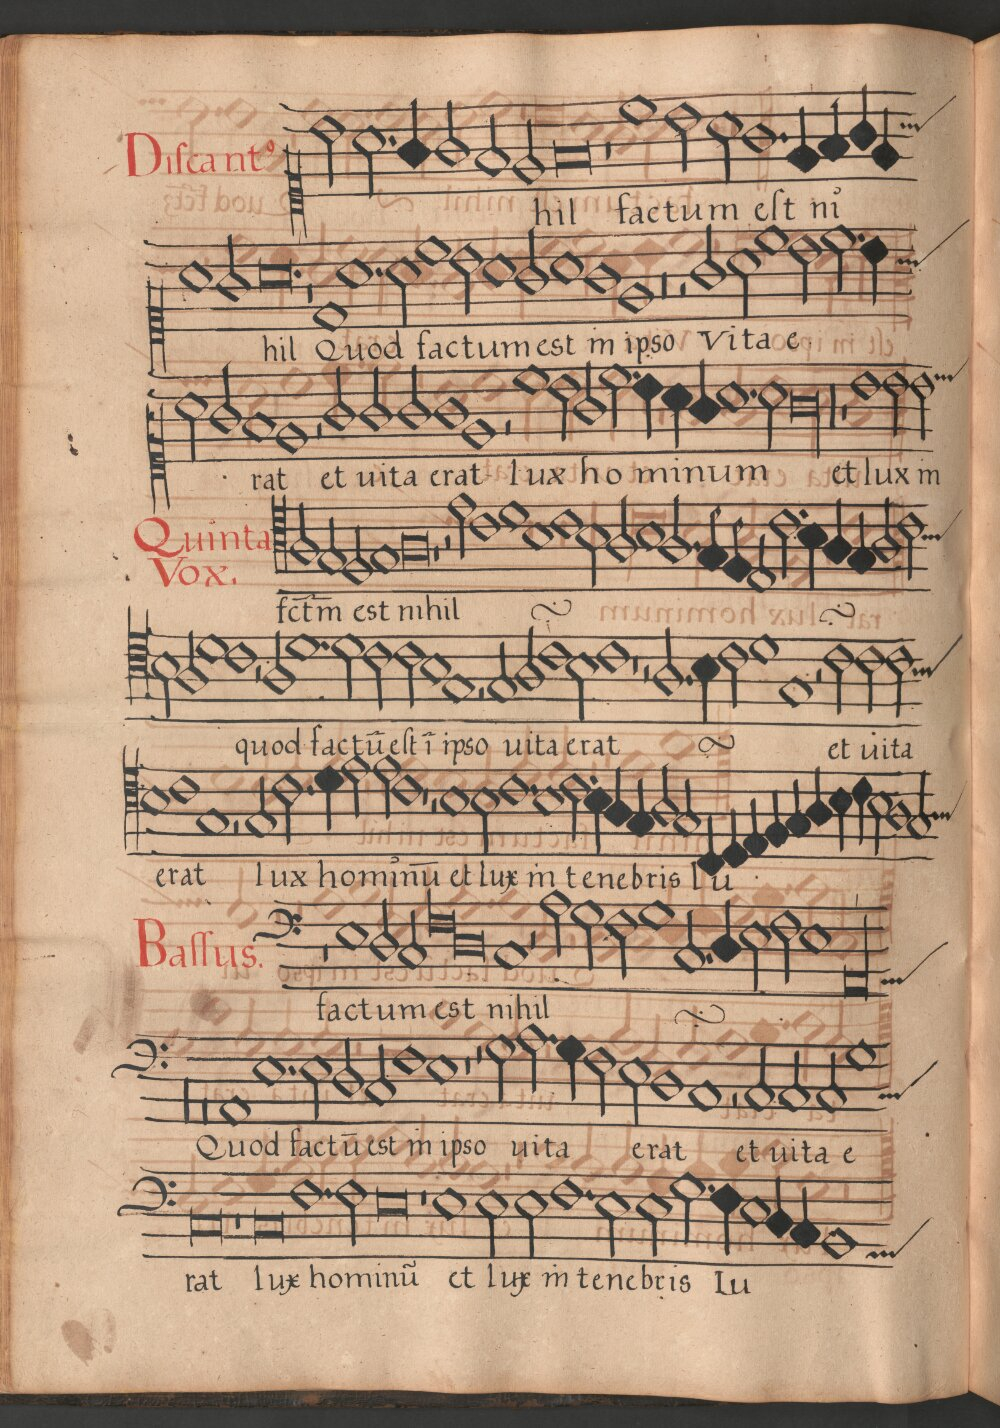 Discantꝰ
hil factum est ni
hil Quod factum est in ipso Vita e
rat et uita erat lux ho minum et lux in
Quinta
Vox.
fct̄m est nihil
quod factū est ī ipso uita erat et uita
erat lux hominū et lux in tenebris lu
Bassus.
factum est nihil
Quod factū est in ipso uita erat et uita e
rat lux hominū et lux in tenebris Lu